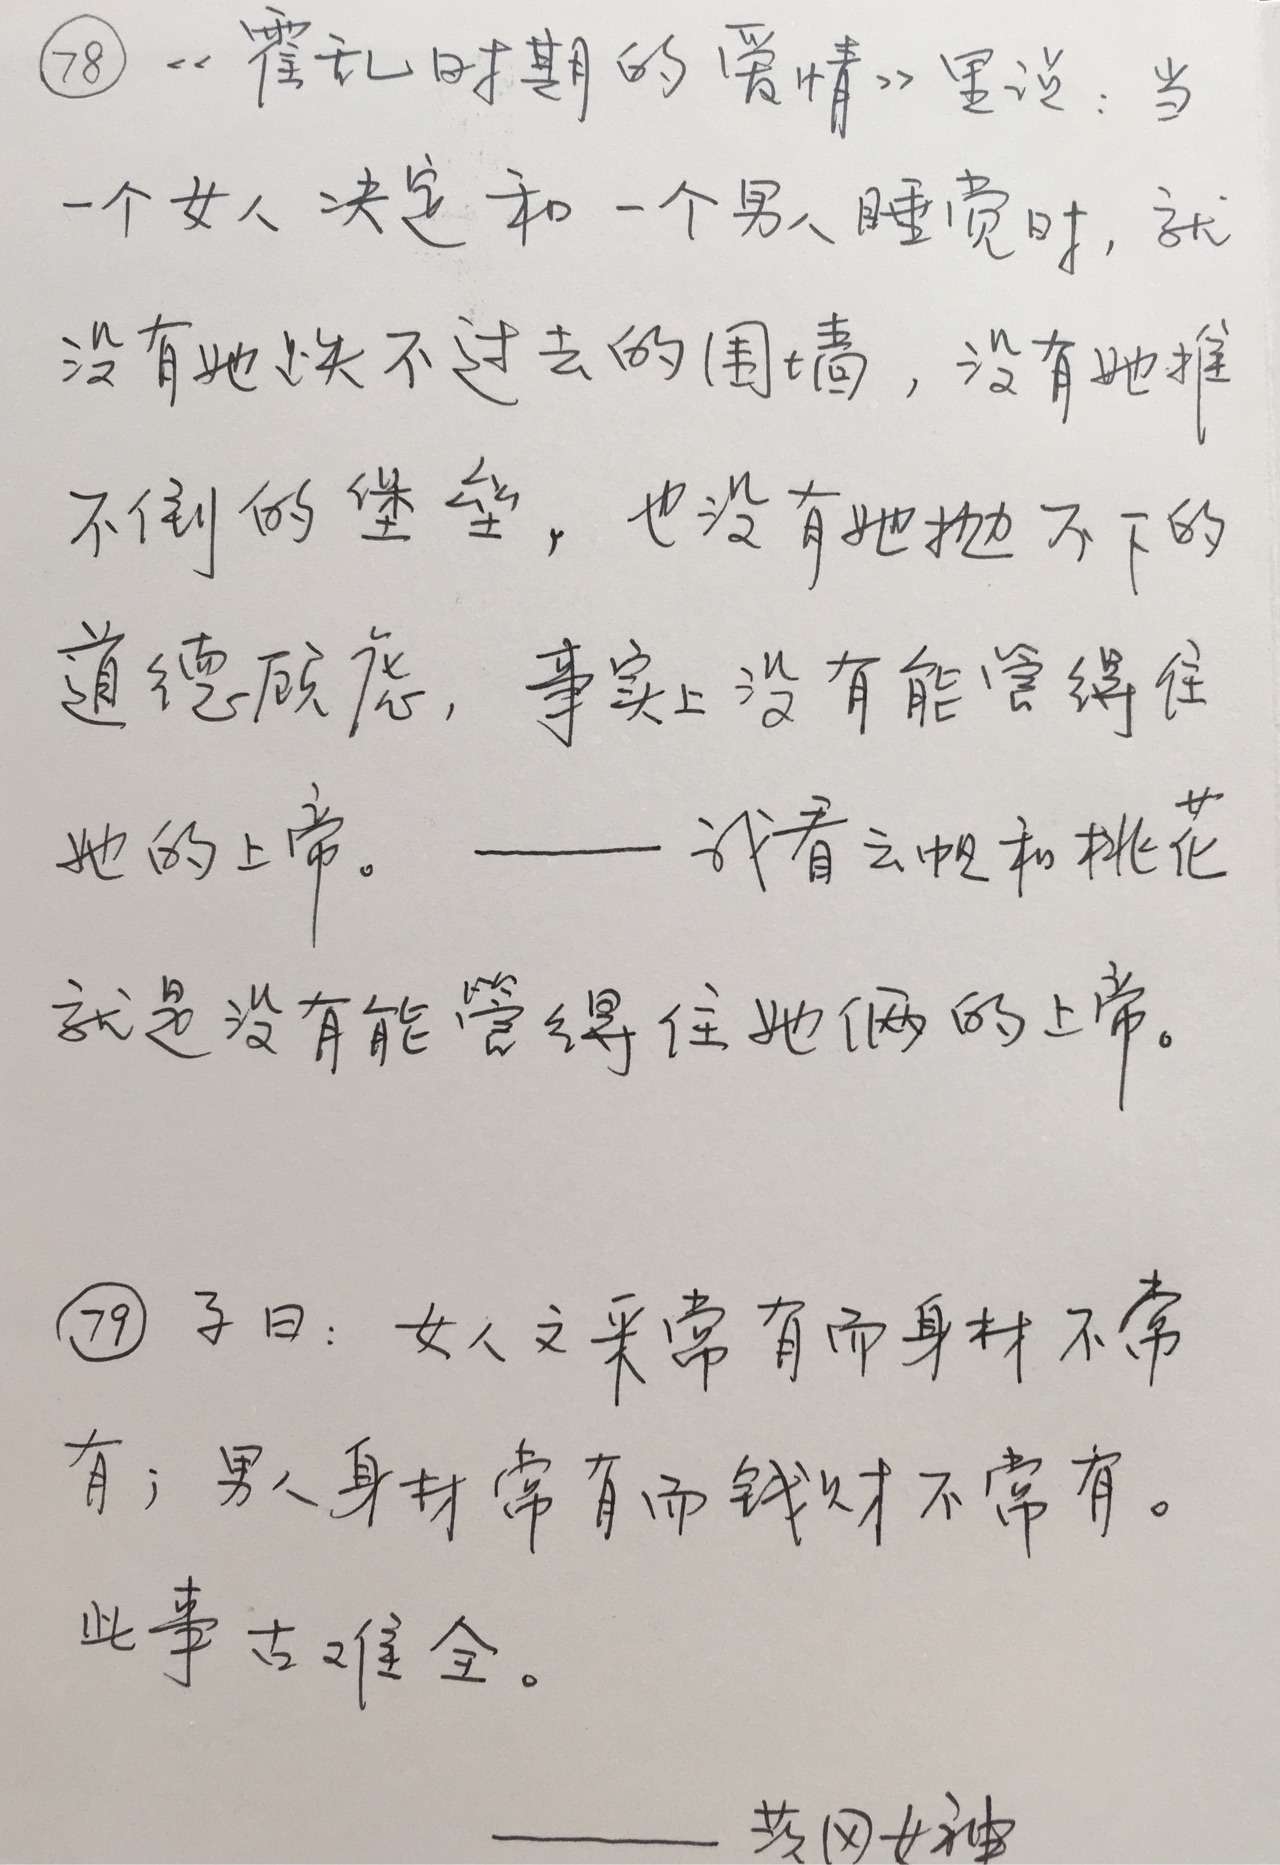 78 《霍乱时期的爱情》里说：当
一个女人决定和一个男人睡觉时，就
没有她跌不过去的围墙，没有她推
不倒的堡垒，也没有她抛不下的
道德顾虑，事实上没有能管得住
她的上帝。——我看云帆和桃花
就是没有能管得住她俩的上帝。
79 子曰：女人文采常有而身材不常
有；男人身材常有而钱财不常有。
此事古难全。
——女神